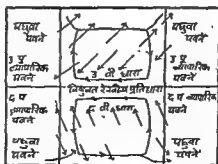 पछुवा
पवने
पछुवा
पवने
उ पू
व्यापारिक
पवने
उ पू
व्यापारिक
पवने
उ वी धारा
विषुवत रेखीय प्रतिधारा
द वी धारा
द पू
व्यापारिक
पवने
द पू व्यापारिक
पवने
पछुवा
पवने
पछुवा
पवने